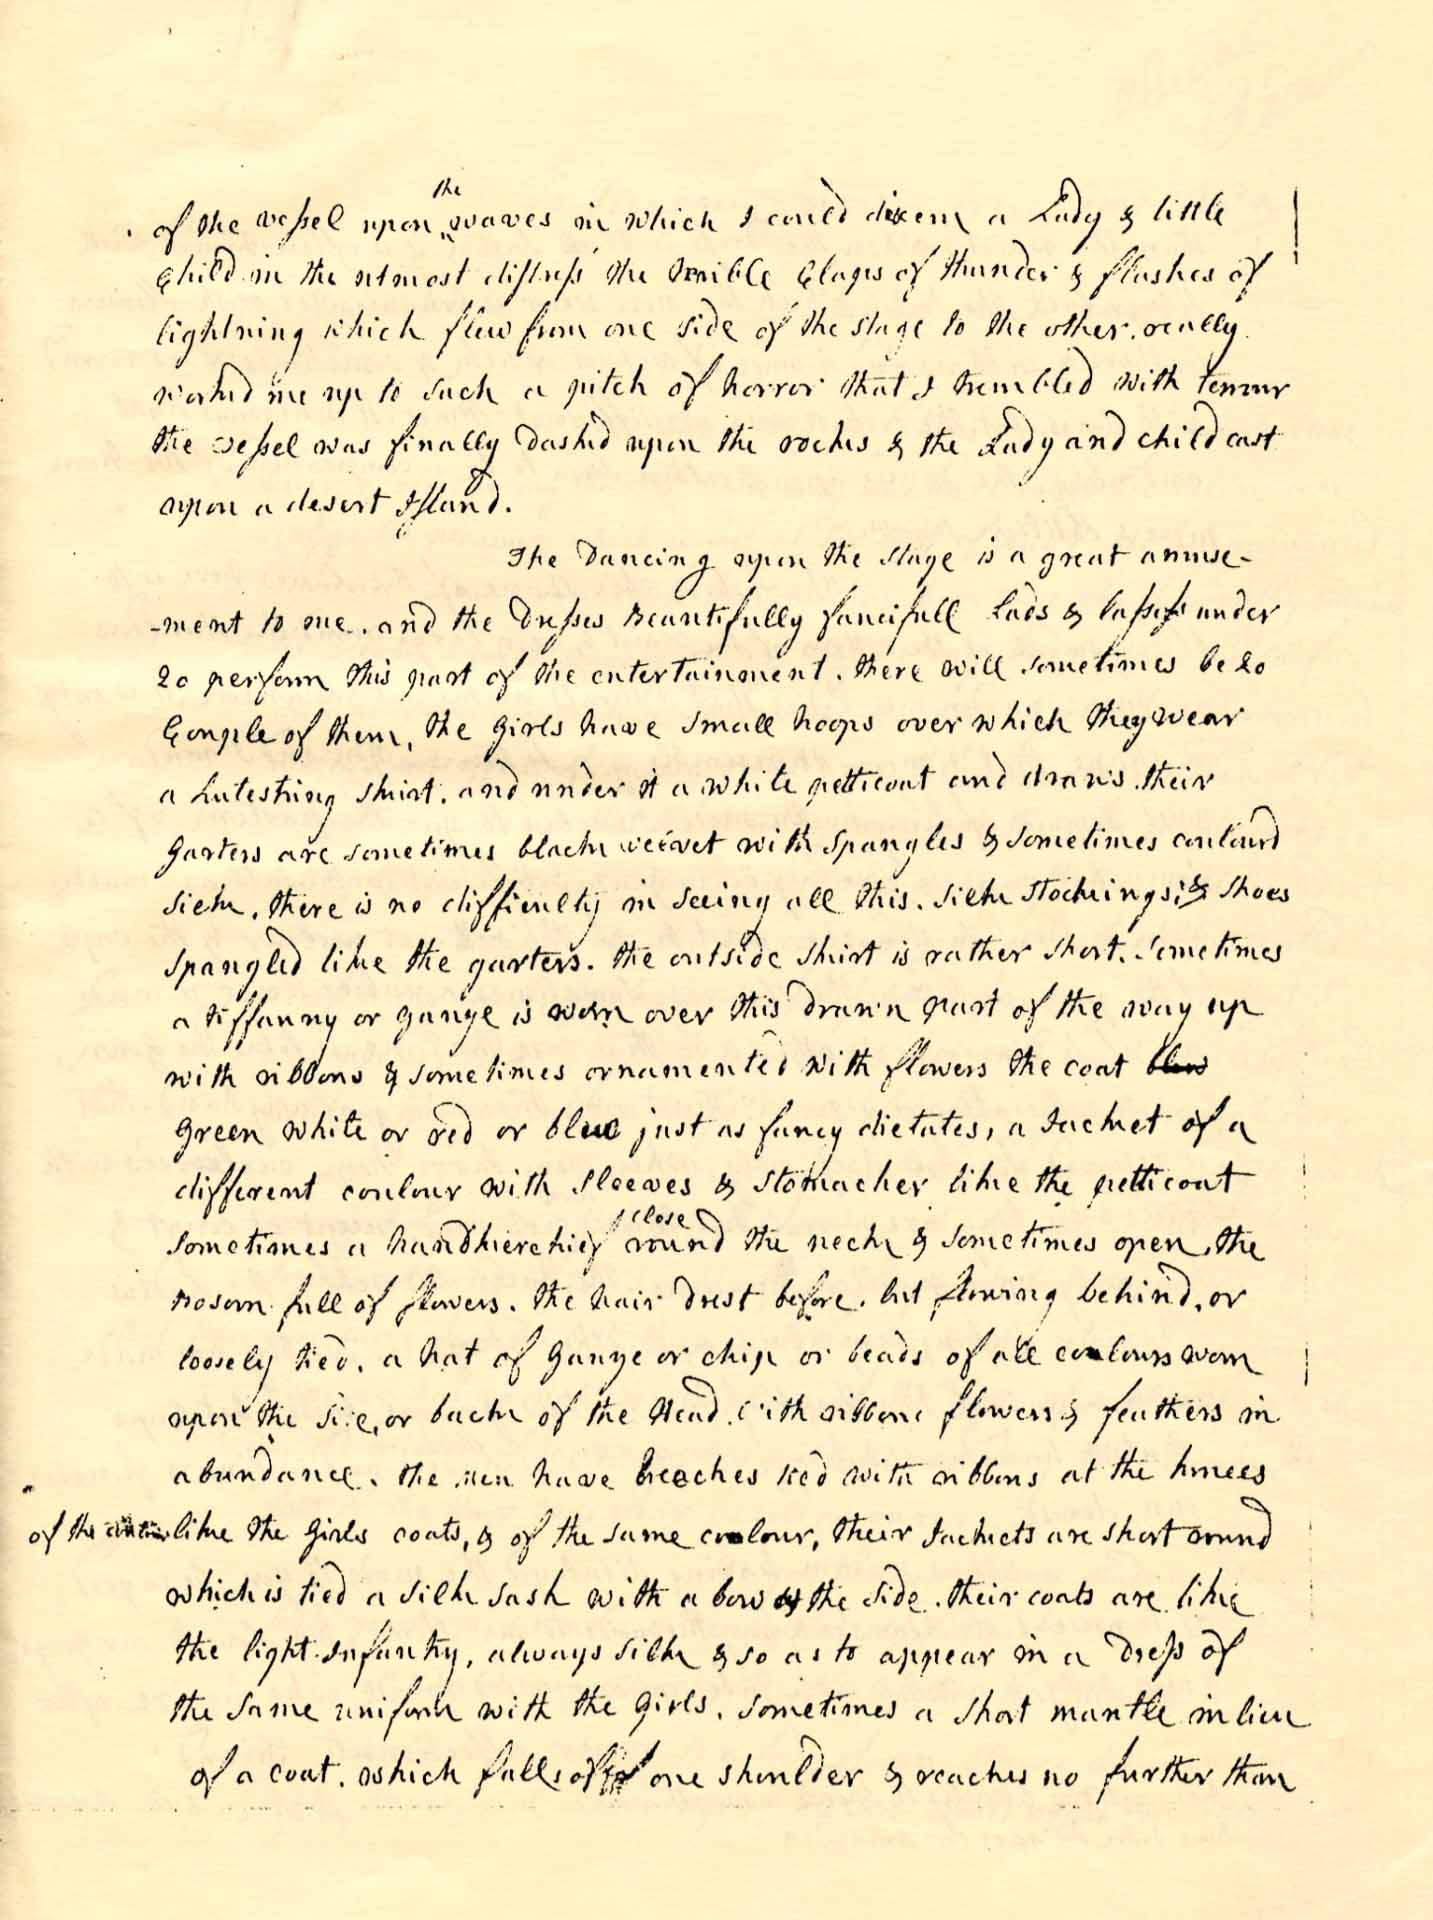 of the vessel upon the waves in which I could discern a Lady & little
Child in the utmost distress the terrible Claps of thunder & flashes of
lightning which flew from one side of the stage to the other. really
worked me up to such a pitch of horror that I trembled with terrour
the vessel was finally dashed upon the rocks & the Lady and child cast
upon a desert Island.
The Dancing upon the stage is a great amuse-
-ment to me. and the Dresses Beautifully fancifull Lads & lasses under
20 perform this part of the entertainment. there will sometimes be 20
Couple of them, the Girls have small hoops over which they wear
a Lutestring skirt. and under it a white petticoat and draws. their
Garters are sometimes black velvet with spangles & sometimes coulourd
silk. there is no difficulty in seeing all this. silk stockings & shoes
spangled like the garters. the outside skirt is rather short. sometimes
a tiffanny or gauze is worn over this drawn part of the way up
with ribbons & sometimes ornamented with flowers the coat blue
Green white or red or blue just as fancy dictates, a Jacket of a
different coulour with sleeves & stomacher like the petticoat
sometimes a handkierchief close round the neck & sometimes open, the
Bosom full of flowers. the hair drest before. but flowing behind, or
loosely tied. a hat of Gauze or chip or beads of all coulours worn
upon the side, or back of the Head. with ribbons flowers & feathers in
abundance. the men have Breeches tied with ribbons at the knees
of the like the Girls coats, & of the same coulour, their Jackets are short round
which is tied a silk sash with a bow the side. their coats are like
the light Infantry, always silk & so as to appear in a Dress of
the same uniform with the Girls. sometimes a short mantle in lieu
of a coat. which falls off one shoulder & reaches no further than